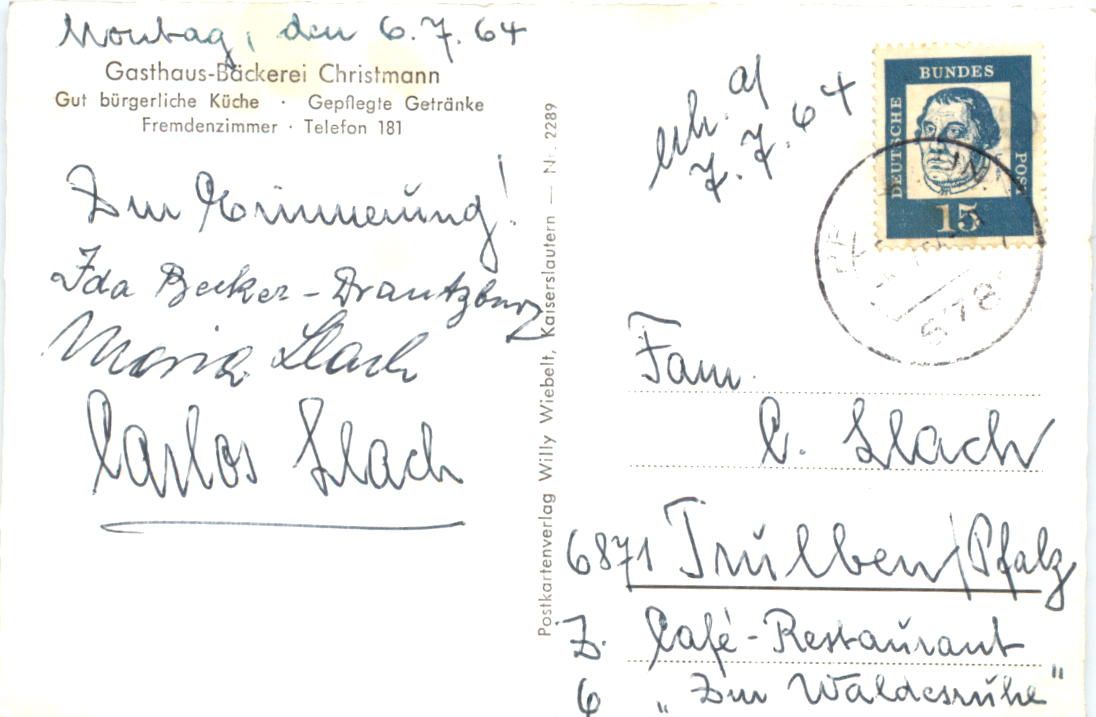 Montag, den 6.7.64
Gasthaus-Bäckerei Christmann
Gut bürgerliche Küche · Gepflegte Getränke
Fremdenzimmer · Telefon 181
Zur Erinnerung!
Ida Becker-Drautzburg
Maria Llach
Carlos Llach
Postkartenverlag Willy Wiebelt, Kaiserslautern — Nr. 2289
erh. a/
7.7.64
DEUTSCHE
BUNDES
POST
15
678
Fam.
C. Llach
6871 Trulben/Pfalz
Z. Café-Restaurant
6 „Zur Waldesruhe"